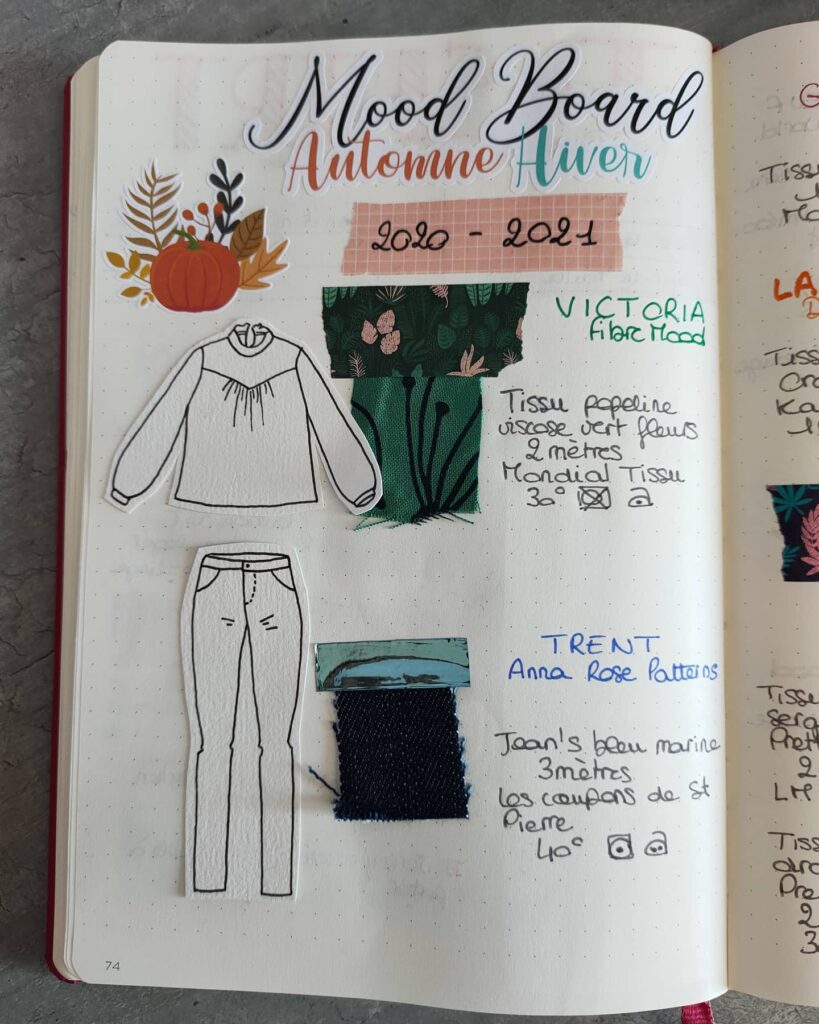 Mood Board
Automne Hiver
2020 - 2021
VICTORIA
Fibre Mood
Tissu popeline
viscose vert fleurs
2 mètres
Mondial Tissu
30°
TRENT
Anna Rose Patterns
Jean's bleu marine
3 mètres
Les coupons de St
Pierre
40°
74
G
Tiss
Mo
LA
D
Tiss
Cr
Ka
Tiss
serg
Prett
2
LM
Tiss
Pre
2
3